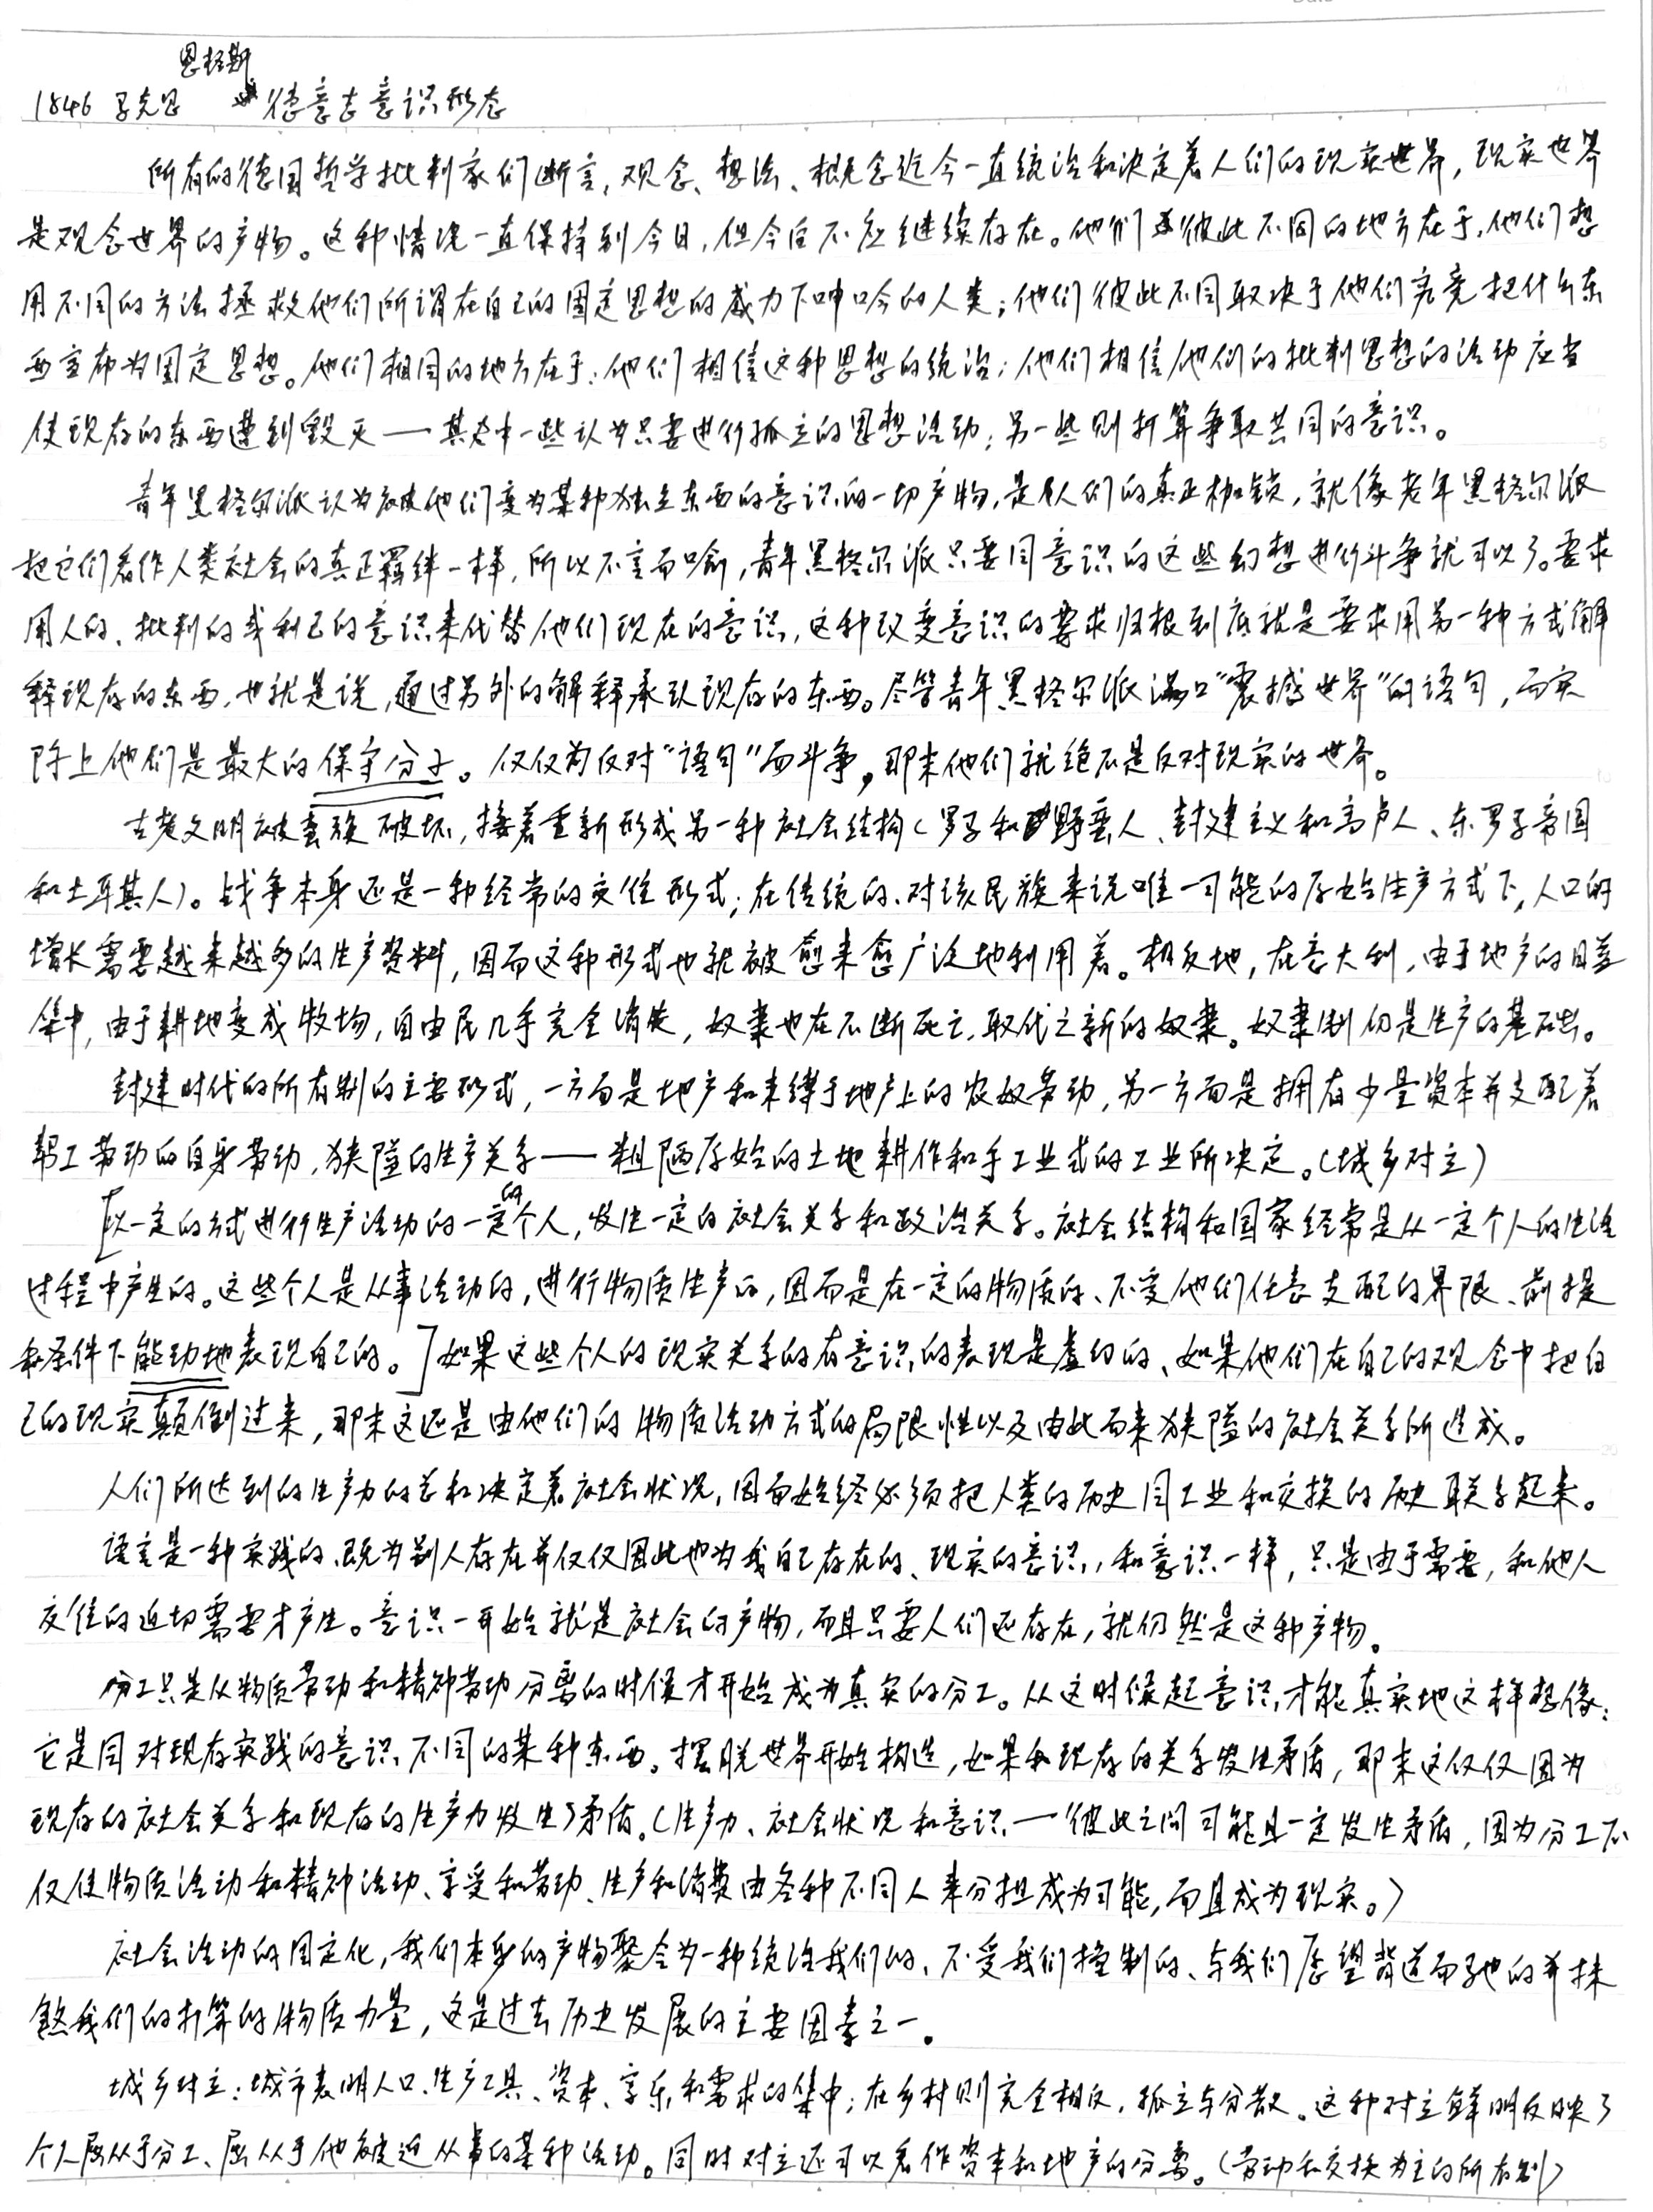 恩格斯
1846 马克思 德意志意识形态
所有的德国哲学批判家们断言,观念、想法、概念迄今一直统治和决定着人们的现实世界,现实世界
是观念世界的产物。这种情况一直保持到今日,但今后不应继续存在。他们彼此不同的地方在于,他们想
用不同的方法拯救他们所谓在自己的固定思想的威力下呻吟的人类;他们彼此不同取决于他们究竟把什么东
西宣布为固定思想。他们相同的地方在于:他们相信这种思想的统治;他们相信他们的批判思想的活动应当
使现存的东西遭到毁灭——其中一些认为只要进行孤立的思想活动;另一些则打算争取共同的意识。
青年黑格尔派认为被他们变为某种独立东西的意识的一切产物,是人们的真正枷锁,就像老年黑格尔派
把它们看作人类社会的真正羁绊一样,所以不言而喻,青年黑格尔派只要同意识的这些幻想进行斗争就可以了。要求
用人的、批判的或利己的意识来代替他们现在的意识,这种改变意识的要求归根到底就是要求用另一种方式解
释现存的东西,也就是说,通过另外的解释承认现存的东西。尽管青年黑格尔派满口“震撼世界”的语句,而实
际上他们是最大的保守分子。仅仅为反对“语句”而斗争,那末他们就绝不是反对现实的世界。
古老文明被蛮族破坏,接着重新形成另一种社会结构(罗马和野蛮人、封建主义和高卢人、东罗马帝国
和土耳其人)。战争本身还是一种经常的交往形式;在传统的、对该民族来说唯一可能的原始生产方式下,人口的
增长需要越来越多的生产资料,因而这种形式也就被愈来愈广泛地利用着。相反地,在意大利,由于地产的日益
集中,由于耕地变成牧场,自由民几乎完全消失,奴隶也在不断死亡,取代之新的奴隶。奴隶制仍是生产的基础。
封建时代的所有制的主要形式,一方面是地产和束缚于地产上的农奴劳动,另一方面是拥有少量资本并支配着
帮工劳动的自身劳动,狭隘的生产关系——粗陋原始的土地耕作和手工业式的工业所决定。(城乡对立)
[以一定的方式进行生产活动的一定的个人,发生一定的社会关系和政治关系。社会结构和国家经常是从一定个人的生活
过程中产生的。这些个人是从事活动的,进行物质生产的,因而是在一定的物质的、不受他们任意支配的界限、前提
和条件下能动地表现自己的。]如果这些个人的现实关系的有意识的表现是虚幻的、如果他们在自己的观念中把自
己的现实颠倒过来,那末这还是由他们的物质活动方式的局限性以及由此而来狭隘的社会关系所造成。
人们所达到的生产力的总和决定着社会状况,因而始终必须把人类的历史同工业和交换的历史联系起来。
语言是一种实践的、既为别人存在并仅仅因此也为我自己存在的、现实的意识,和意识一样,只是由于需要,和他人
交往的迫切需要才产生。意识一开始就是社会的产物,而且只要人们还存在,就仍然是这种产物。
分工只是从物质劳动和精神劳动分离的时候才开始成为真实的分工。从这时候起意识才能真实地这样想像:
它是同对现存实践的意识不同的某种东西。摆脱世界开始构造,如果和现存的关系发生矛盾,那末这仅仅因为
现存的社会关系和现存的生产力发生了矛盾。(生产力、社会状况和意识——彼此之间可能且一定发生矛盾,因为分工不
仅使物质活动和精神活动、享受和劳动、生产和消费由各种不同人来分担成为可能,而且成为现实。)
社会活动的固定化,我们本身的产物聚合为一种统治我们的、不受我们控制的、与我们愿望背道而驰的并抹
煞我们的打算的物质力量,这是过去历史发展的主要因素之一。
城乡对立:城市表明人口、生产工具、资本、享乐和需求的集中;在乡村则完全相反,孤立与分散。这种对立鲜明反映了
个人屈从于分工、屈从于他被迫从事的某种活动。同时对立还可以看作资本和地产的分离。(劳动和交换为主的所有制)